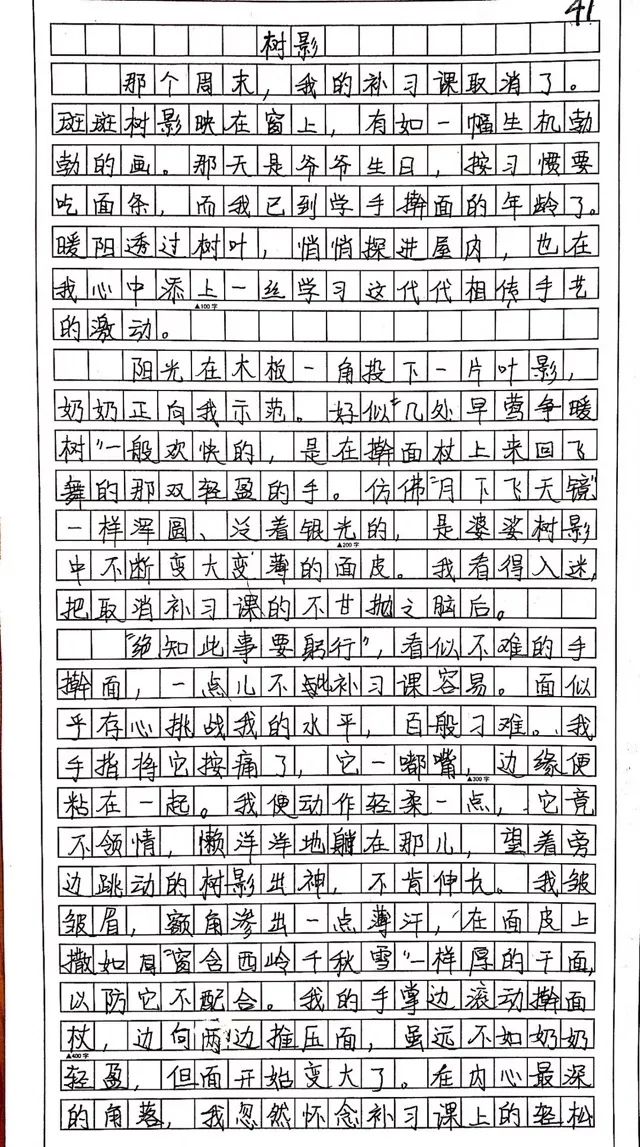 41
树影
那个周末，我的补习课取消了。
斑斑树影映在窗上，有如一幅生机勃
勃的画。那天是爷爷生日，按习惯要
吃面条，而我已到学手擀面的年龄了。
暖阳透过树叶，悄悄探进屋内，也在
我心中添上一丝学习这代代相传手艺
▲100字
的激动。
阳光在木板一角投下一片叶影，
奶奶正向我示范。好似"几处早莺争暖
树"一般欢快的，是在擀面杖上来回飞
舞的那双轻盈的手。仿佛"月下飞天镜"
一样浑圆、泛着银光的，是婆娑树影
▲200字
中不断变大变薄的面皮。我看得入迷，
把取消补习课的不甘抛之脑后。
"绝知此事要躬行"，看似不难的手
擀面，一点儿不比补习课容易。面似
乎存心挑战我的水平，百般刁难。我
手指将它按痛了，它一嘟嘴，边缘便
▲300字
粘在一起。我便动作轻柔一点，它竟
不领情，懒洋洋地躺在那儿，望着旁
边跳动的树影出神，不肯伸长。我皱
皱眉，额角渗出一点薄汗，在面皮上
撒如"窗含西岭千秋雪"一样厚的干面，
以防它不配合。我的手掌边滚动擀面
杖，边向两边推压面，虽远不如奶奶
▲400字
轻盈，但面开始变大了。在内心最深
的角落，我忽然怀念补习课上的轻松